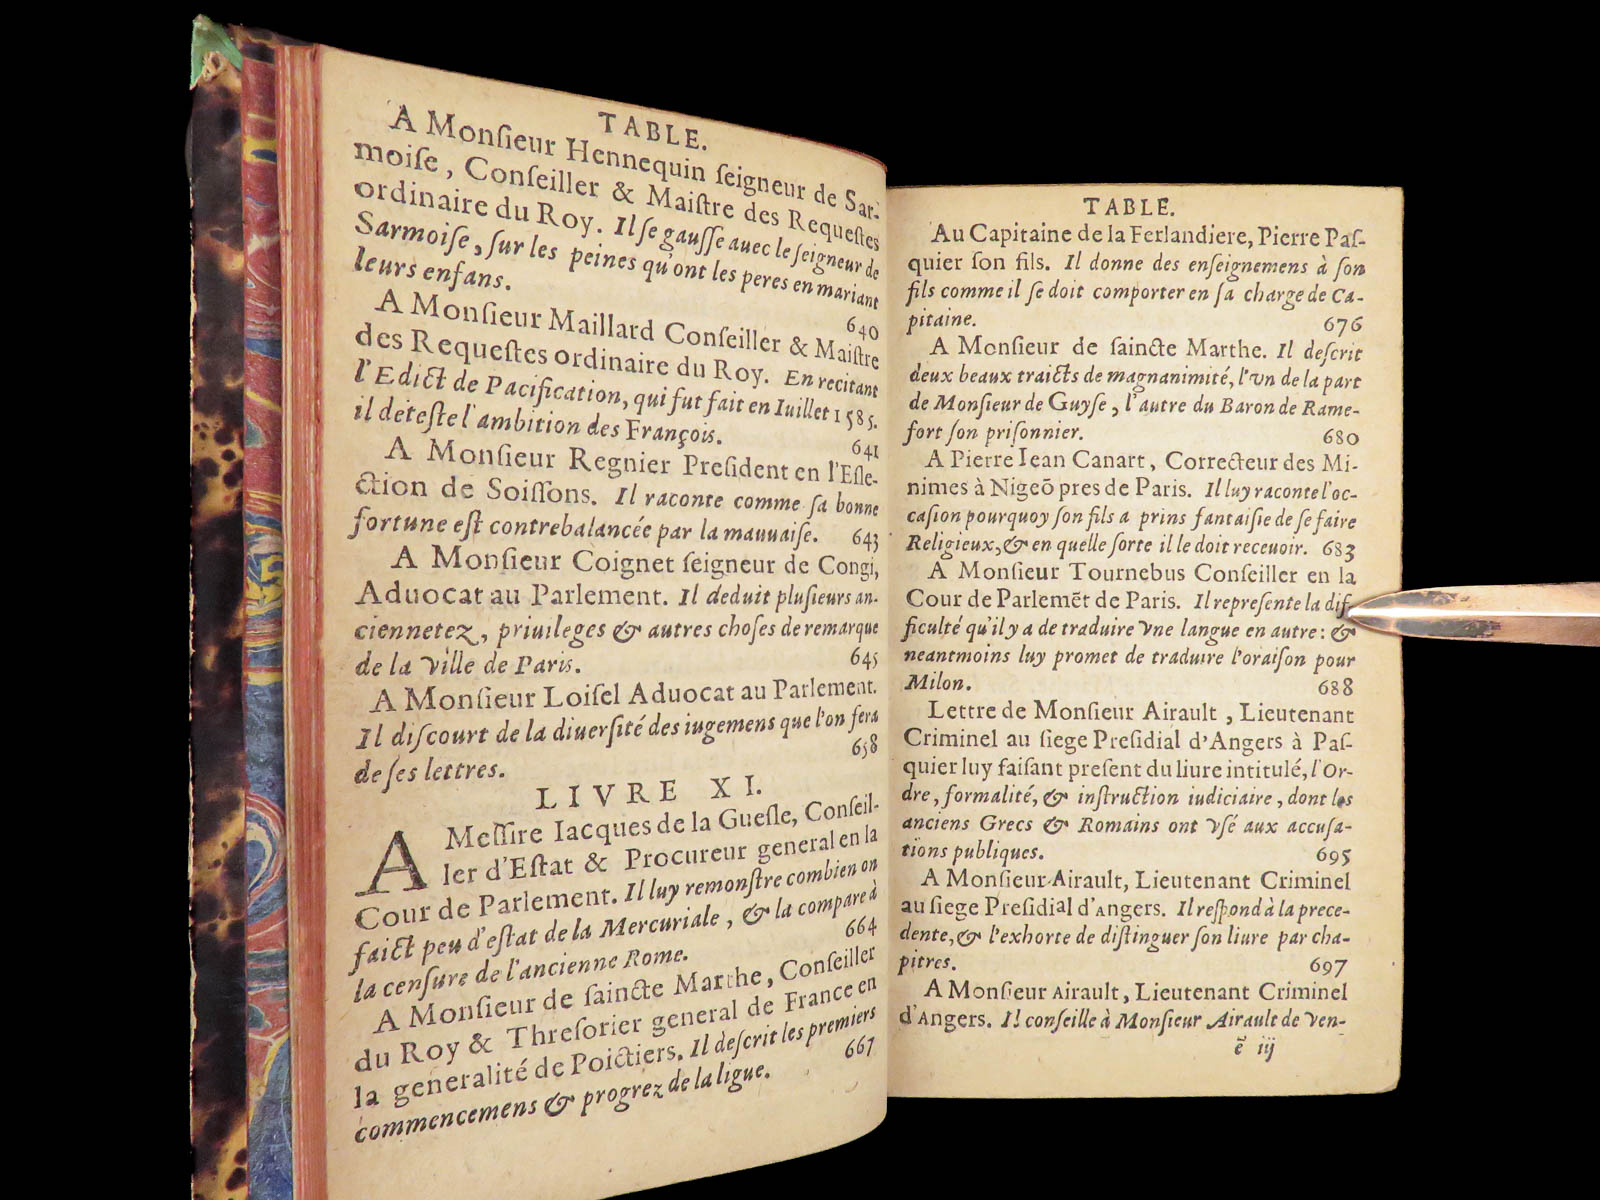 TABLE.
A Monſieur Hennequin ſeigneur de Sar-
moiſe, Conſeiller & Maiſtre des Requeſtes
ordinaire du Roy. Il ſe gauſſe auec le ſeigneur de
Sarmoiſe, ſur les peines qu'ont les peres en mariant
leurs enfans. 640
A Monſieur Maillard Conſeiller & Maiſtre
des Requeſtes ordinaire du Roy. En recitant
l'Edict de Pacification, qui fut fait en Iuillet 1585.
il deteſte l'ambition des François. 641
A Monſieur Regnier Preſident en l'Eſle-
ction de Soiſſons. Il raconte comme ſa bonne
fortune eſt contrebalancée par la mauuaiſe. 643
A Monſieur Coignet ſeigneur de Congi,
Aduocat au Parlement. Il deduit pluſieurs an-
ciennetez, priuileges & autres choſes de remarque
de la ville de Paris. 645
A Monſieur Loiſel Aduocat au Parlement.
Il diſcourt de la diuerſité des iugemens que l'on fera
de ſes lettres. 658
LIVRE XI.
A Meſſire Iacques de la Gueſle, Conſeil-
ler d'Eſtat & Procureur general en la
Cour de Parlement. Il luy remonſtre combien on
faict peu d'eſtat de la Mercuriale, & la compare à
la cenſure de l'ancienne Rome. 664
A Monſieur de ſaincte Marthe, Conſeiller
du Roy & Threſorier general de France en
la generalité de Poictiers. Il deſcrit les premiers
commencemens & progrez de la ligue. 667
TABLE.
Au Capitaine de la Ferlandiere, Pierre Paſ-
quier ſon fils. Il donne des enſeignemens à ſon
fils comme il ſe doit comporter en ſa charge de Ca-
pitaine. 676
A Monſieur de ſaincte Marthe. Il deſcrit
deux beaux traicts de magnanimité, l'vn de la part
de Monſieur de Guyſe, l'autre du Baron de Rame-
fort ſon priſonnier. 680
A Pierre Iean Canart, Correcteur des Mi-
nimes à Nigeõ pres de Paris. Il luy raconte l'oc-
caſion pourquoy ſon fils a prins fantaiſie de ſe faire
Religieux, & en quelle ſorte il le doit receuoir. 683
A Monſieur Tournebus Conſeiller en la
Cour de Parlemẽt de Paris. Il repreſente la dif-
ficulté qu'il y a de traduire vne langue en autre: &
neantmoins luy promet de traduire l'oraiſon pour
Milon. 688
Lettre de Monſieur Airault, Lieutenant
Criminel au ſiege Preſidial d'Angers à Paſ-
quier luy faiſant preſent du liure intitulé, l'Or-
dre, formalité, & inſtruction iudiciaire, dont les
anciens Grecs & Romains ont vſé aux accuſa-
tions publiques. 695
A Monſieur Airault, Lieutenant Criminel
au ſiege Preſidial d'Angers. Il reſpond à la prece-
dente, & l'exhorte de diſtinguer ſon liure par cha-
pitres. 697
A Monſieur Airault, Lieutenant Criminel
d'Angers. Il conſeille à Monſieur Airault de ven-
ẽ iij